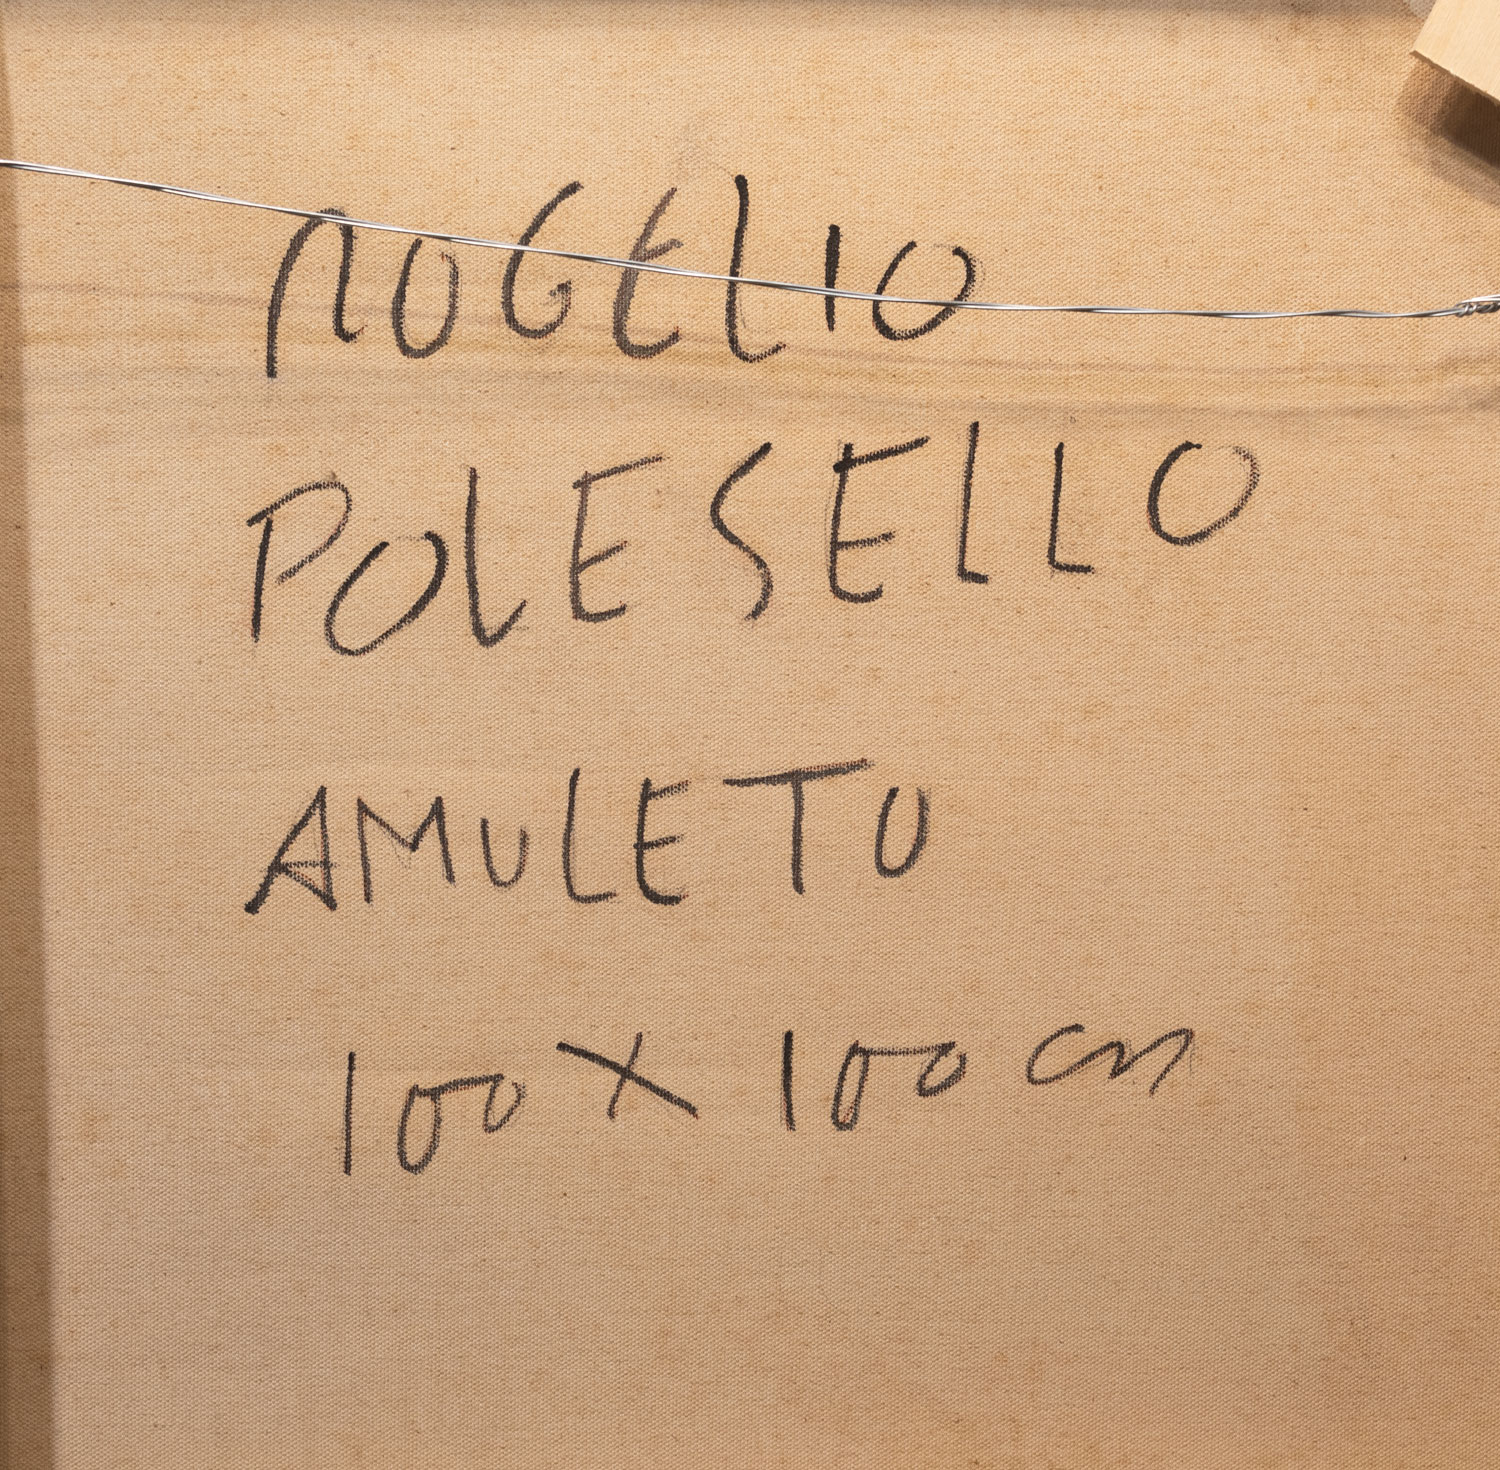 ROGELIO
POLESELLO
AMULETO
100 X 100 cm